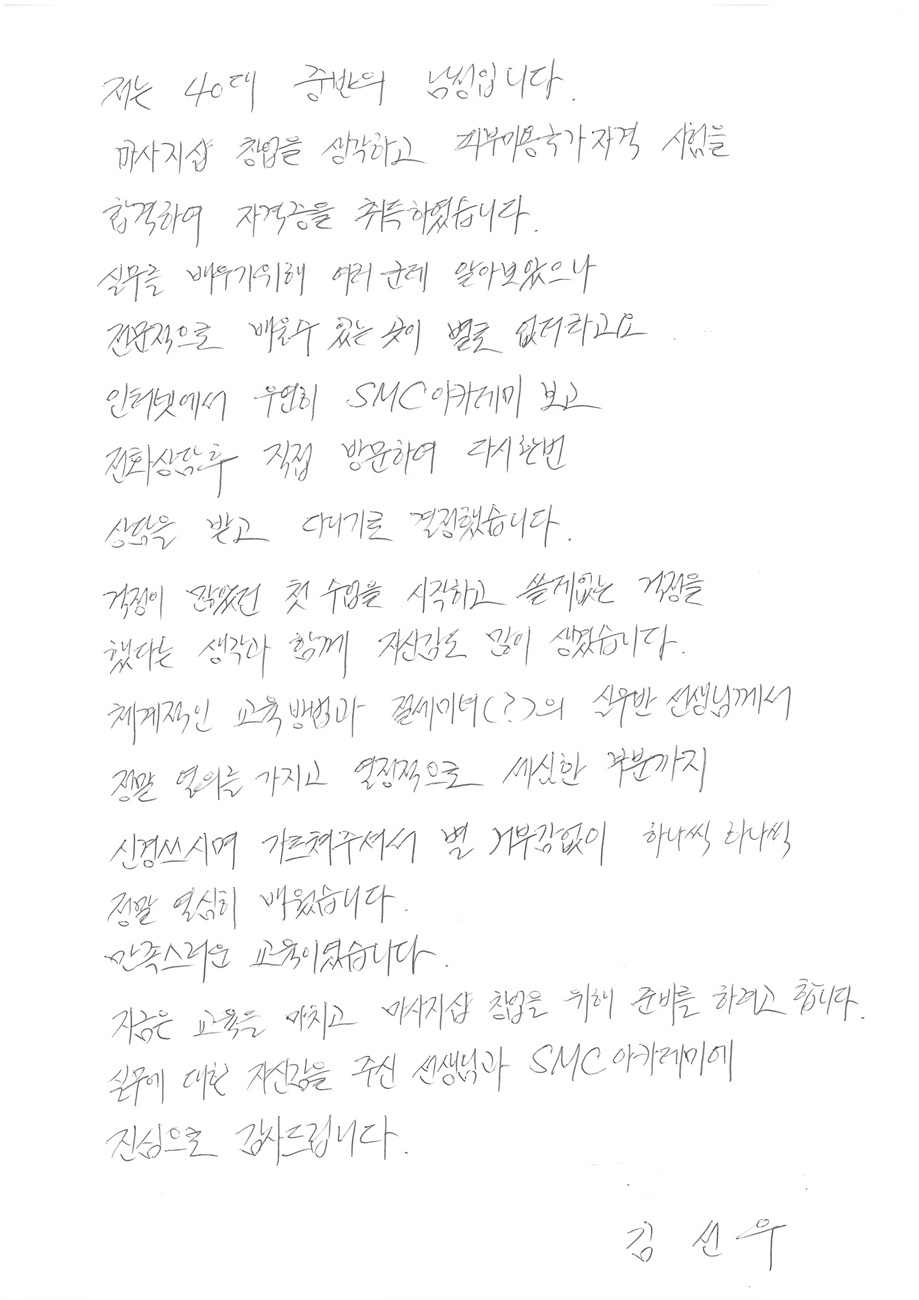 저는 40대 중반의 남성입니다.
마사지샵 창업을 생각하고 피부미용국가자격 시험을
합격하여 자격증을 취득하였습니다.
실무를 배우기위해 여러군데 알아보았으나
전문적으로 배울수 있는 곳이 별로 없더라고요.
인터넷에서 우연히 SMC아카데미 보고
전화상담후 직접 방문하여 다시한번
상담을 받고 다니기로 결정했습니다.
걱정이 많았던 첫 수업을 시작하고 쓸게없는 걱정을
했다는 생각과 함께 자신감도 많이 생겼습니다.
체계적인 교육방법과 절세미녀(?)의 실무반 선생님께서
정말 열의를 가지고 열정적으로 세심한 부분까지
신경쓰시며 가르쳐주셔서 별 거부감없이 하나씩 하나씩
정말 열심히 배웠습니다.
만족스러운 교육이였습니다.
지금은 교육을 마치고 마사지샵 창업을 위해 준비를 하려고 합니다.
실무에 대한 자신감을 주신 선생님과 SMC아카데미에
진심으로 감사드립니다.
김 선 우